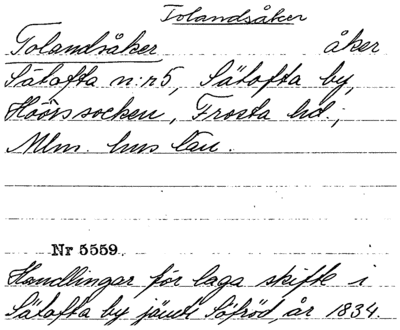 Tolandsåker
Tolandsåker åker
Sätofta n:r 5, Sätofta by,
Höörs socken, Frosta hd.;
Mlm. hus län.
Nr 5559.
Handlingar för laga skifte i
Sätofta by jämte Söfröd, år 1834.